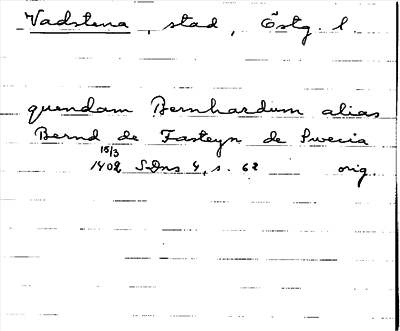 Vadstena, stad, Östg. l
quendam Bernhardum alias
Bernd de Fasteyn de Swecia
15/3
1402 SDns 4, s. 62 orig.